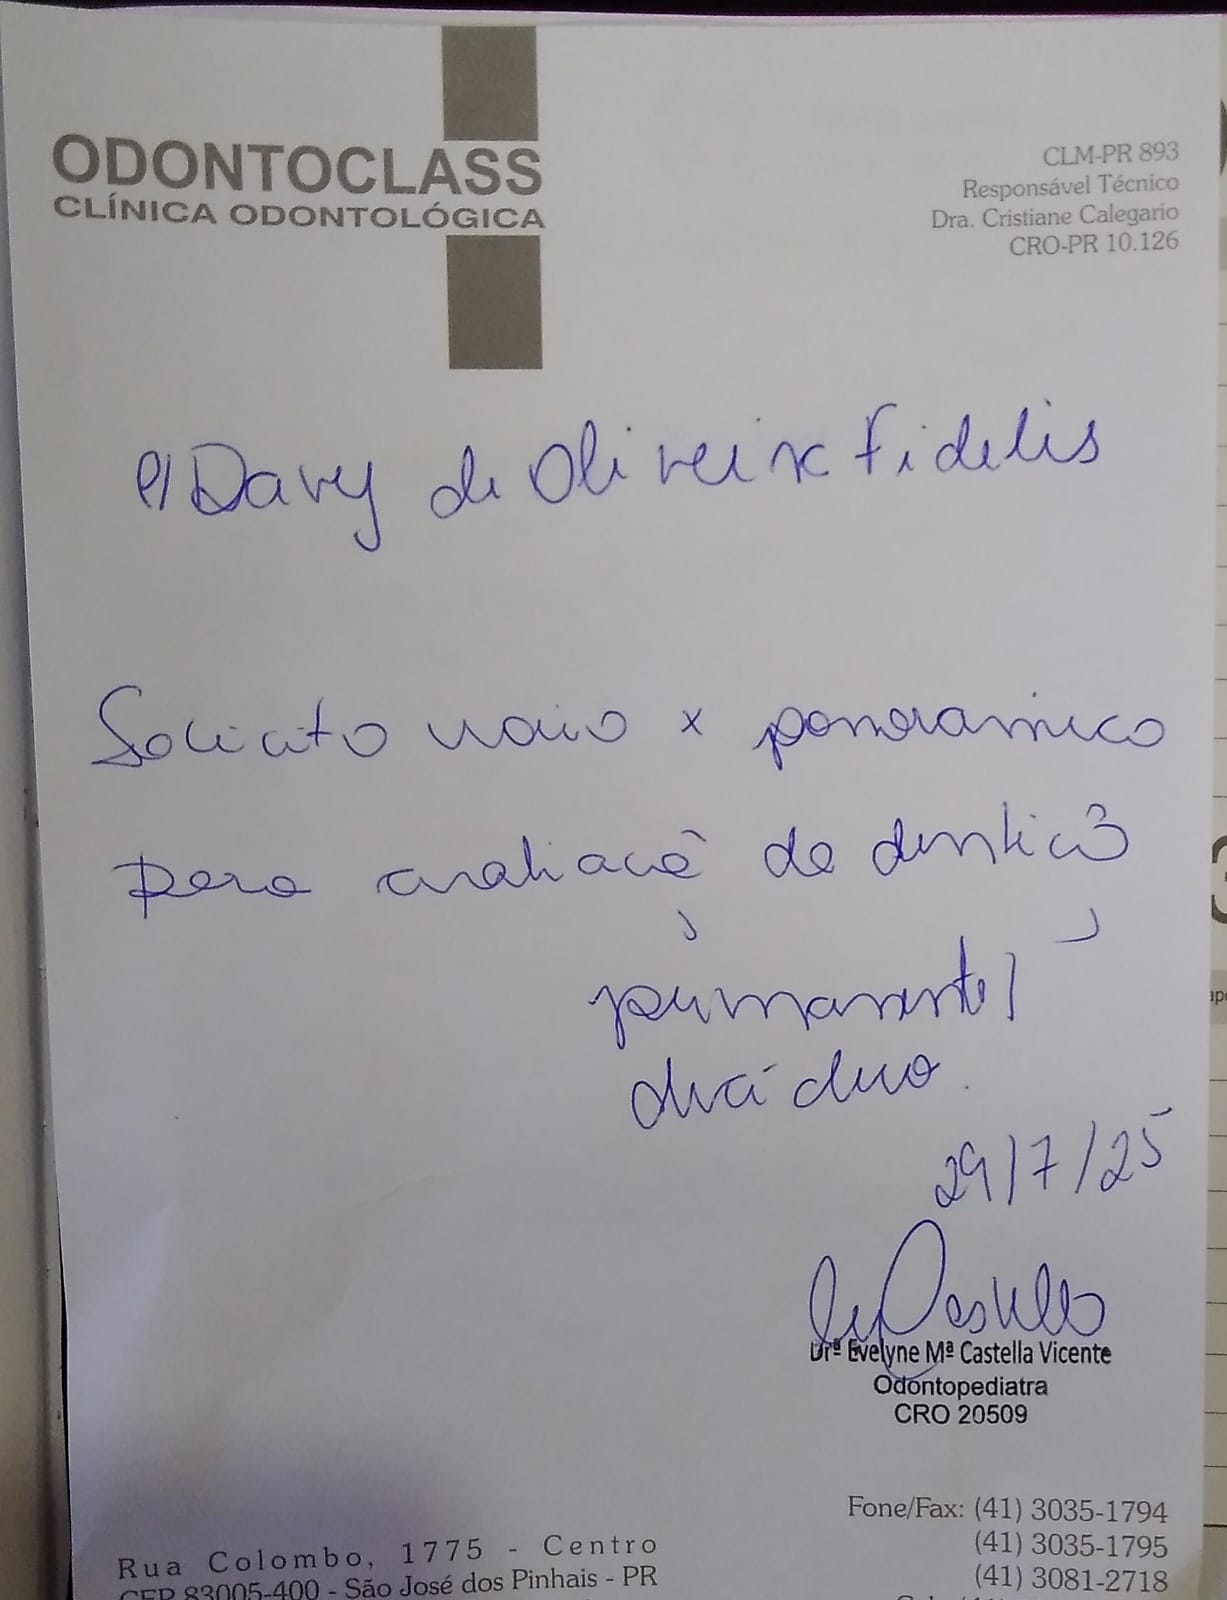 ODONTOCLASS
CLÍNICA ODONTOLÓGICA
CLM-PR 893
Responsável Técnico
Dra. Cristiane Calegario
CRO-PR 10.126
p/ Davy de Oliveira Fidelis
Solicito raio x panorâmico
para avaliação da dentição
permanente/
decíduo.
29/7/25
Drª Evelyne Mª Castella Vicente
Odontopediatra
CRO 20509
Fone/Fax: (41) 3035-1794
(41) 3035-1795
(41) 3081-2718
Rua Colombo, 1775 - Centro
CEP 83005-400 - São José dos Pinhais - PR